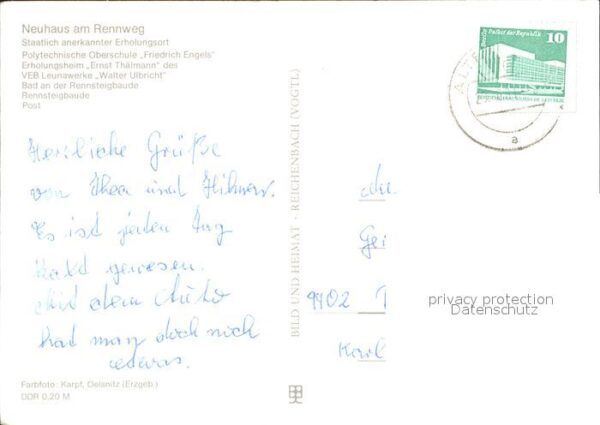 Neuhaus am Rennweg
Staatlich anerkannter Erholungsort
Polytechnische Oberschule „Friedrich Engels"
Erholungsheim „Ernst Thälmann" des
VEB Leunawerke „Walter Ulbricht"
Bad an der Rennsteigbaude
Rennsteigbaude
Post
Herzliche Grüße
von Thea und Hilmar.
Es ist jeden Tag
kalt gewesen.
Mit dem Auto
hat man doch noch
etwas.
Farbfoto: Karpf, Oelsnitz (Erzgeb.)
DDR 0,20 M
BILD UND HEIMAT · REICHENBACH (VOGTL)
Berlin Palast der Republik
10
a
Gei
9402
Karl
privacy protection
Datenschutz